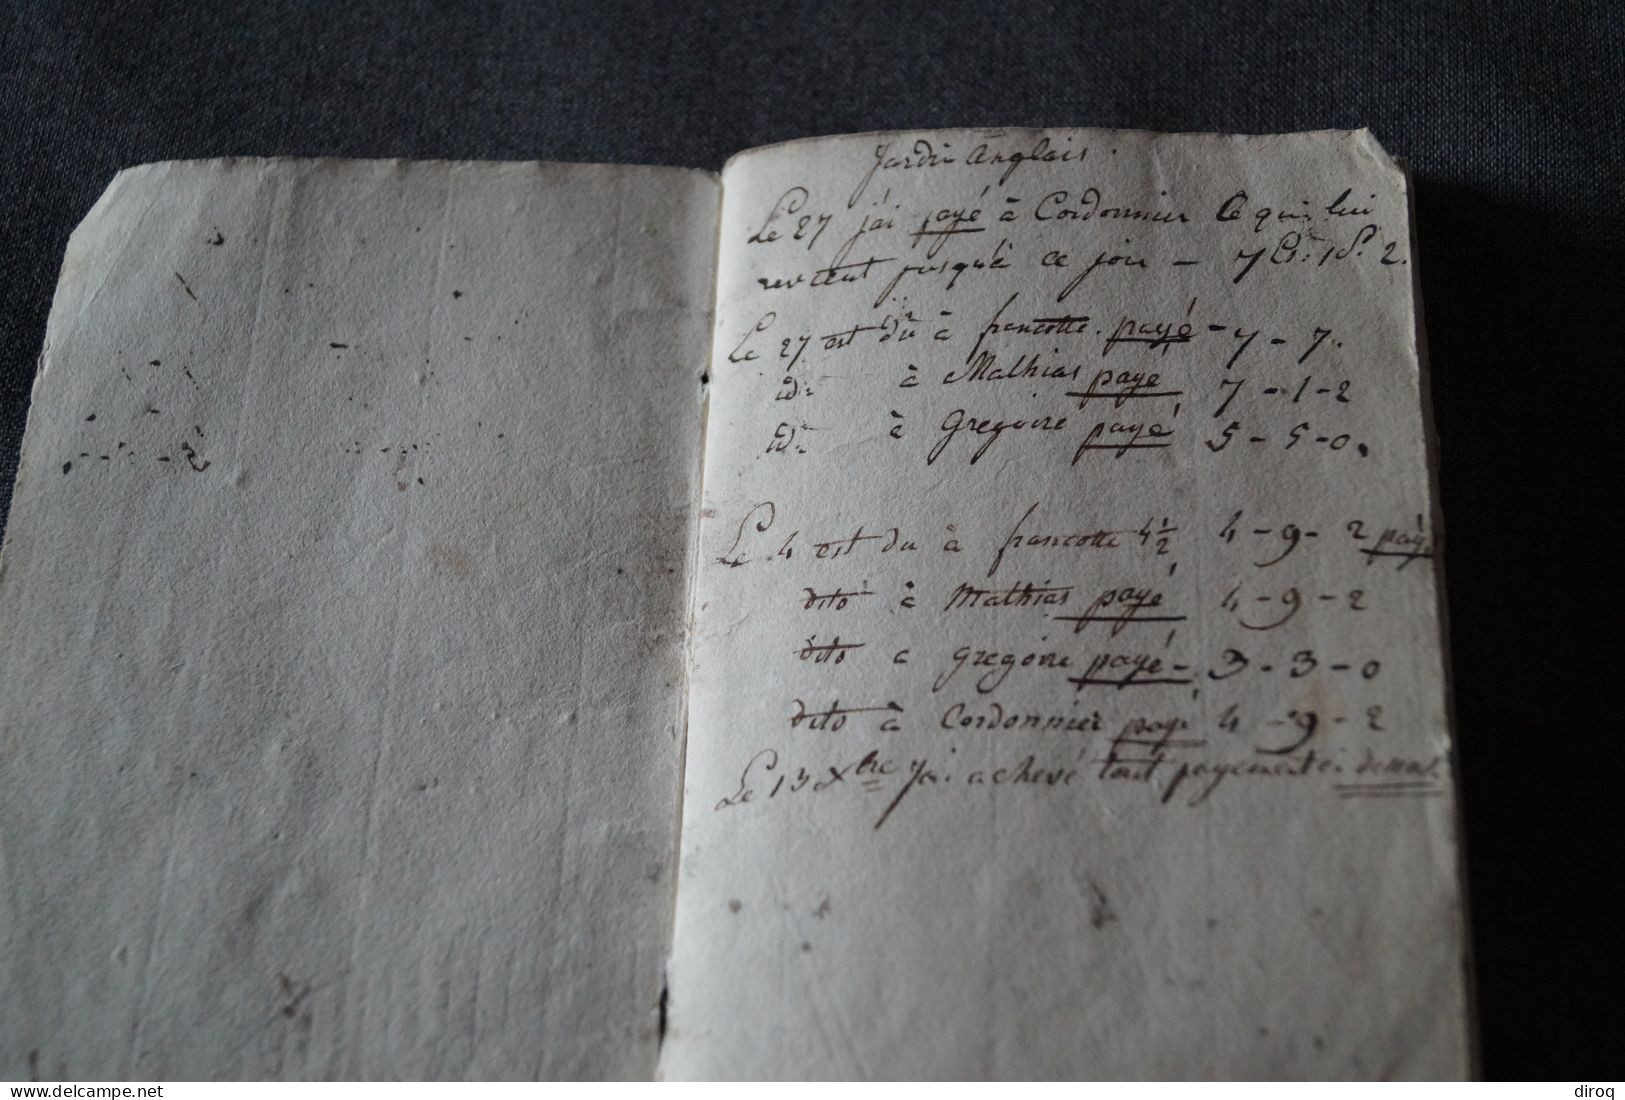 Jardin Anglais.
Le 27 j'ai payé à Cordonnier Ce qui lui
revient jusqu'à ce jour - 7 1 2.
Le 27 est dû à francotte. payé - 7 - 7.
id: à Mathias payé 7 - 1 - 2
id: à Gregoire payé 5 - 5 - 0.
Le 4 est du à francotte 4½ 4 - 9 - 2 payé
dito à Mathias payé 4 - 9 - 2
dito a gregoire payé - 3 - 3 - 0
dito à Cordonnier payé 4 - 9 - 2
Le 13 Xbre J'ai achevé tout payement ci dessus
www.delcampe.net
diroq